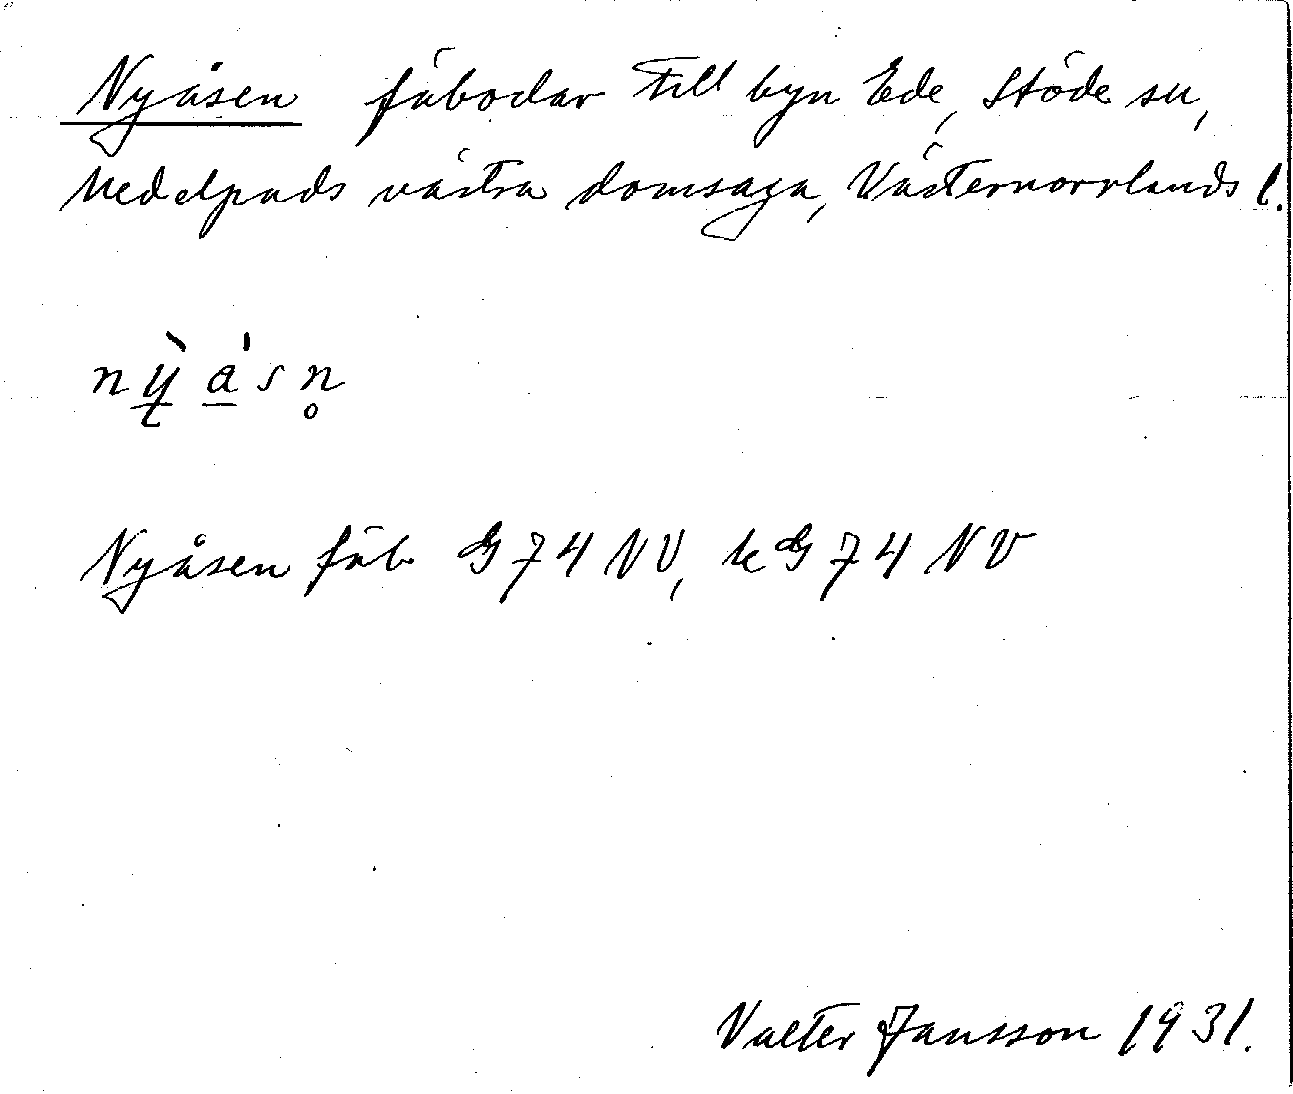 Nyåsen fäbodar till byn Ede, Stöde sn,
Medelpads västra domsaga, Västernorrlands l.
nỳ̱ a̱ˈsn̥
Nyåsen fäb G 74 NV, k G 74 NV
Valter Jansson 1931.